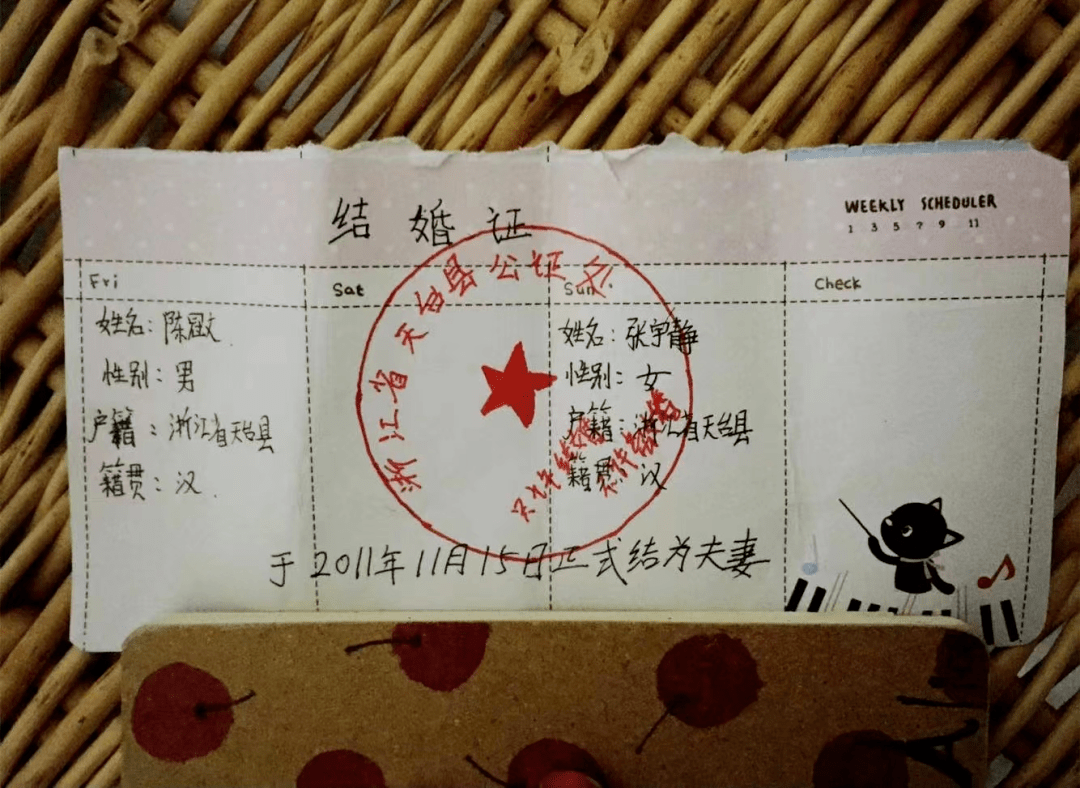 结婚证
WEEKLY SCHEDULER
1 3 5 7 9 11
Fri
Sat
Sun
Check
浙江省天台县公证处
姓名：陈冠文
性别：男
户籍：浙江省天台县
籍贯：汉
姓名：张宇静
性别：女
户籍：浙江省天台县
籍贯：汉
于2011年11月15日正式结为夫妻